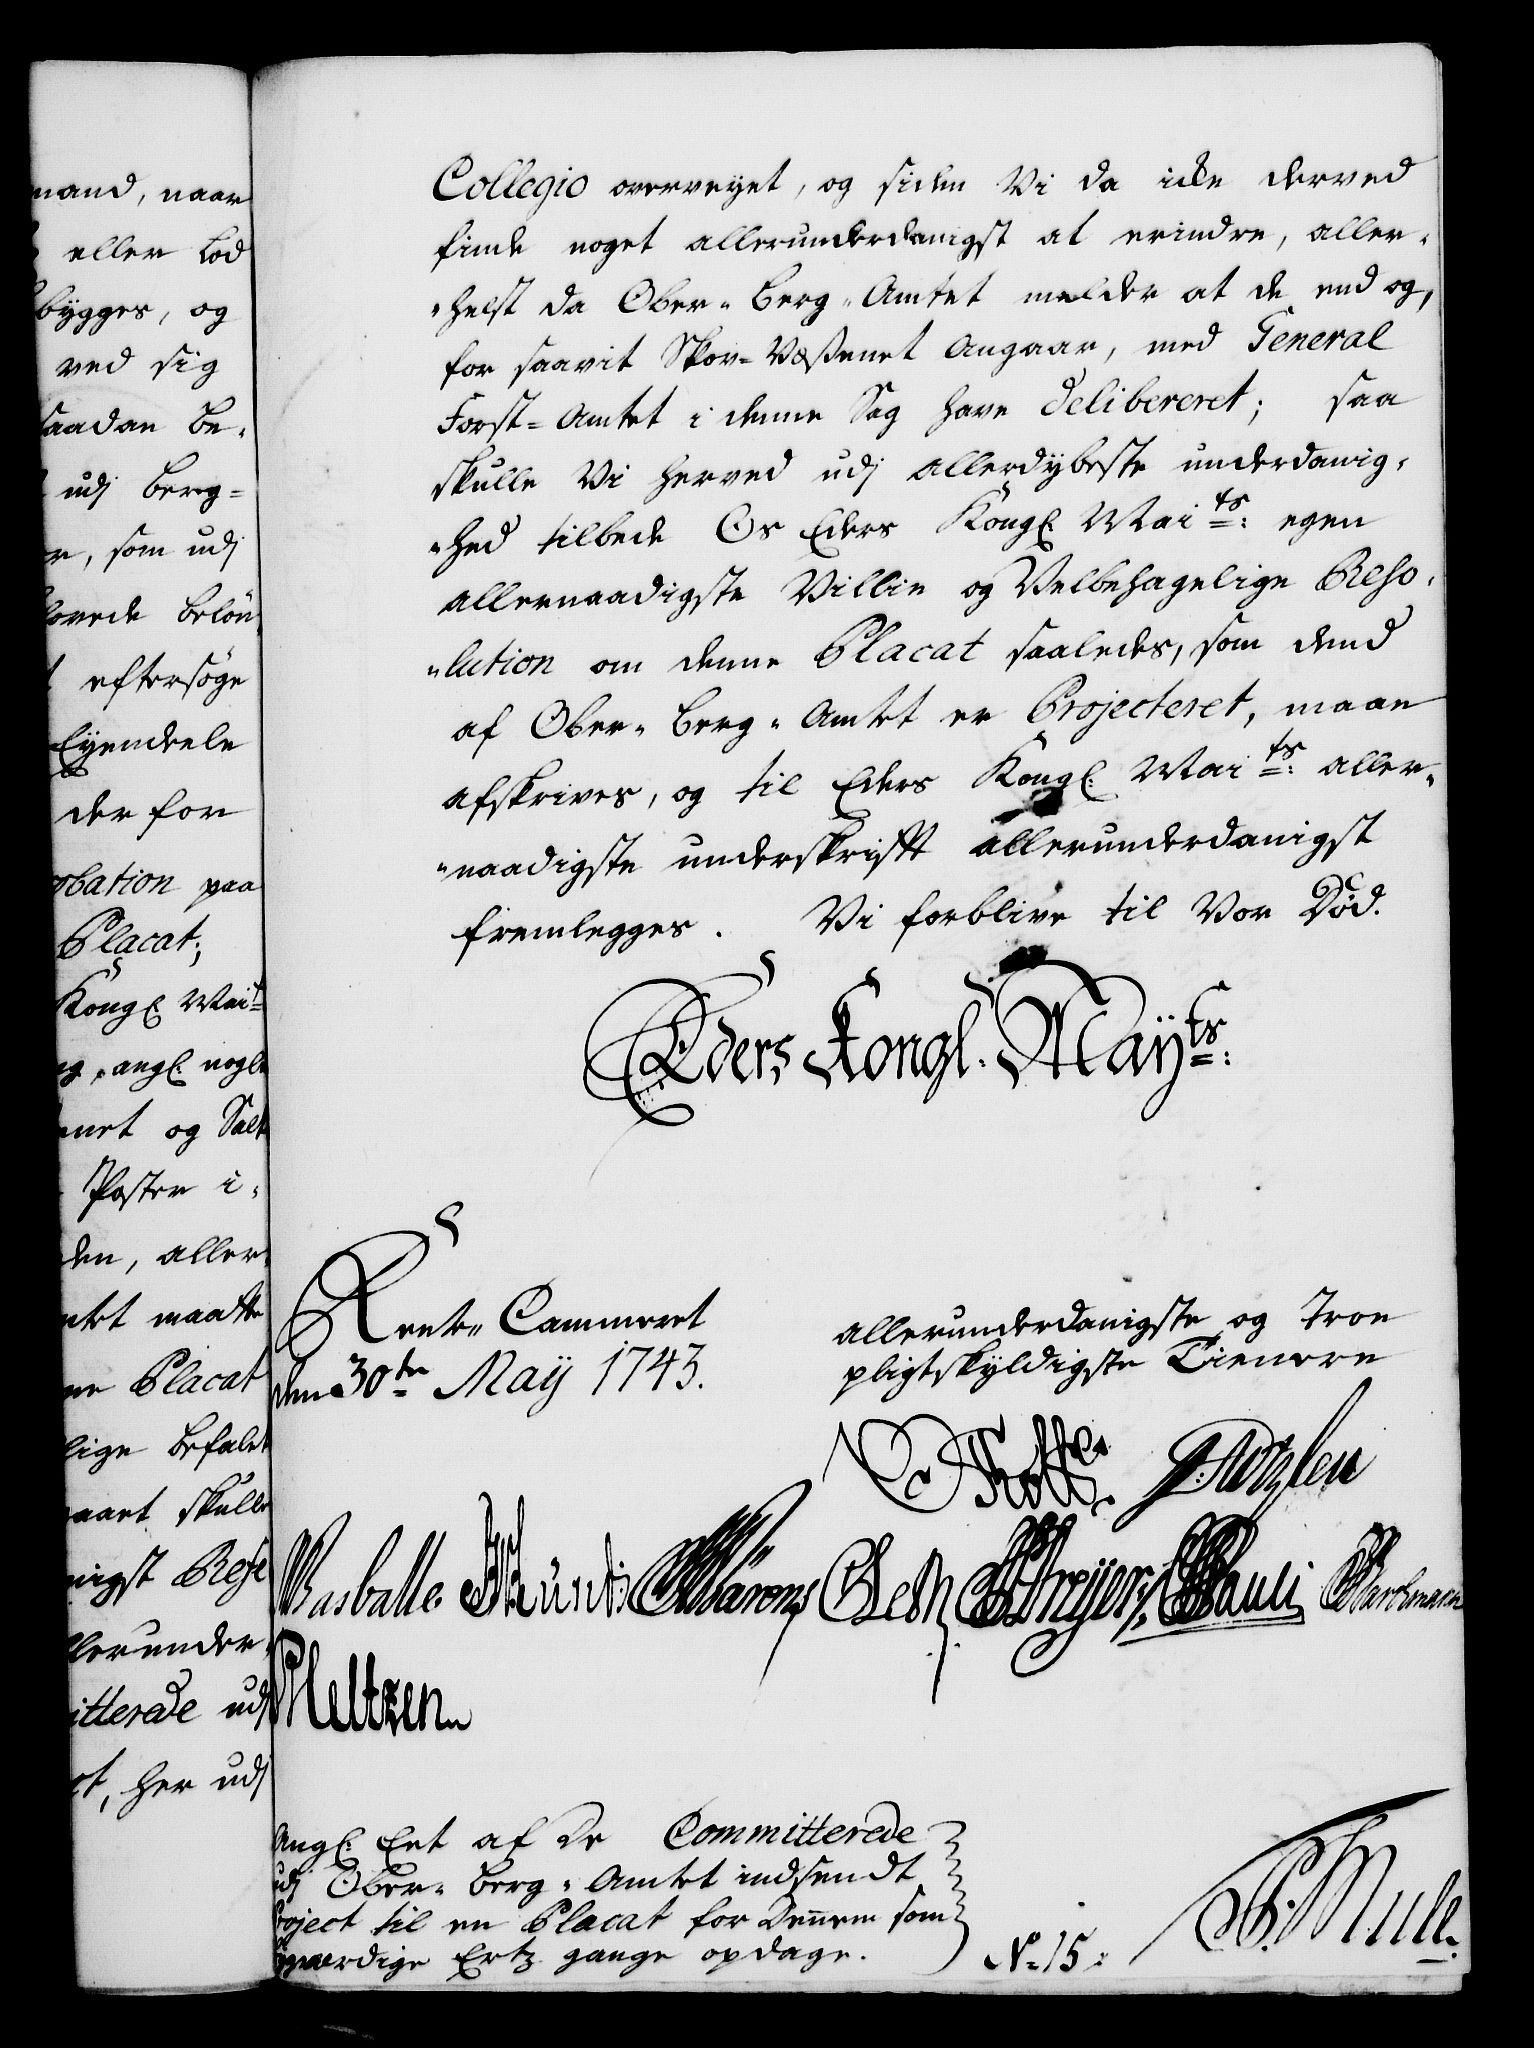 mand, naar
eller Lod
bygges, og
ved sig
saadan Be-
udj Berg-
r, som udj
lovede Belön-
eftersöge
Eyendeele
der for
obation paa
Placat;
Kongl. Mait
angl. nogle
net og Salt
Poster i-
den, aller-
mtet maatte
ne Placat
lige befalet
paaet skulle
nigst Reso
llerunder-
itterede udj
et, her udj
Collegio overveyet, og siden Vi da icke derved
finde noget allerunderdanigst at erindre, aller-
-helst da Ober-Berg-Amtet melder at de end og,
for saavit Skov-Væsenet Angaar, med General
Forst-Amtet i denne Sag have delibereret; saa
skulle Vi herved udj allerdybeste underdanig-
-hed tilbede Os Eders Kongl. Maits: egen
allernaadigste Villie og Velbehagelige Reso-
-lution om denne Placat saaledes, som dend
af Ober-Berg-Amtet er Projecteret, maae
afskrives, og til Eders Kongl. Maits: aller-
-naadigste underskrifft allerunderdanigst
fremlegges. Vi forblive til Vor Död.
Eders Kongl. Mayts:
Rente-Cammeret
den 30te May 1743.
allerunderdanigste og Troe
pligtskyldigste Tienere
Wasballe Münt Beth Dreyer Pauli Barchmann
Meltzen
Angl. Eet af De Committerede
udj Ober-Berg-Amtet indsendt
Project til en Placat for Dennem som
værdige Ertz gange opdage.
No 15:
Mule.